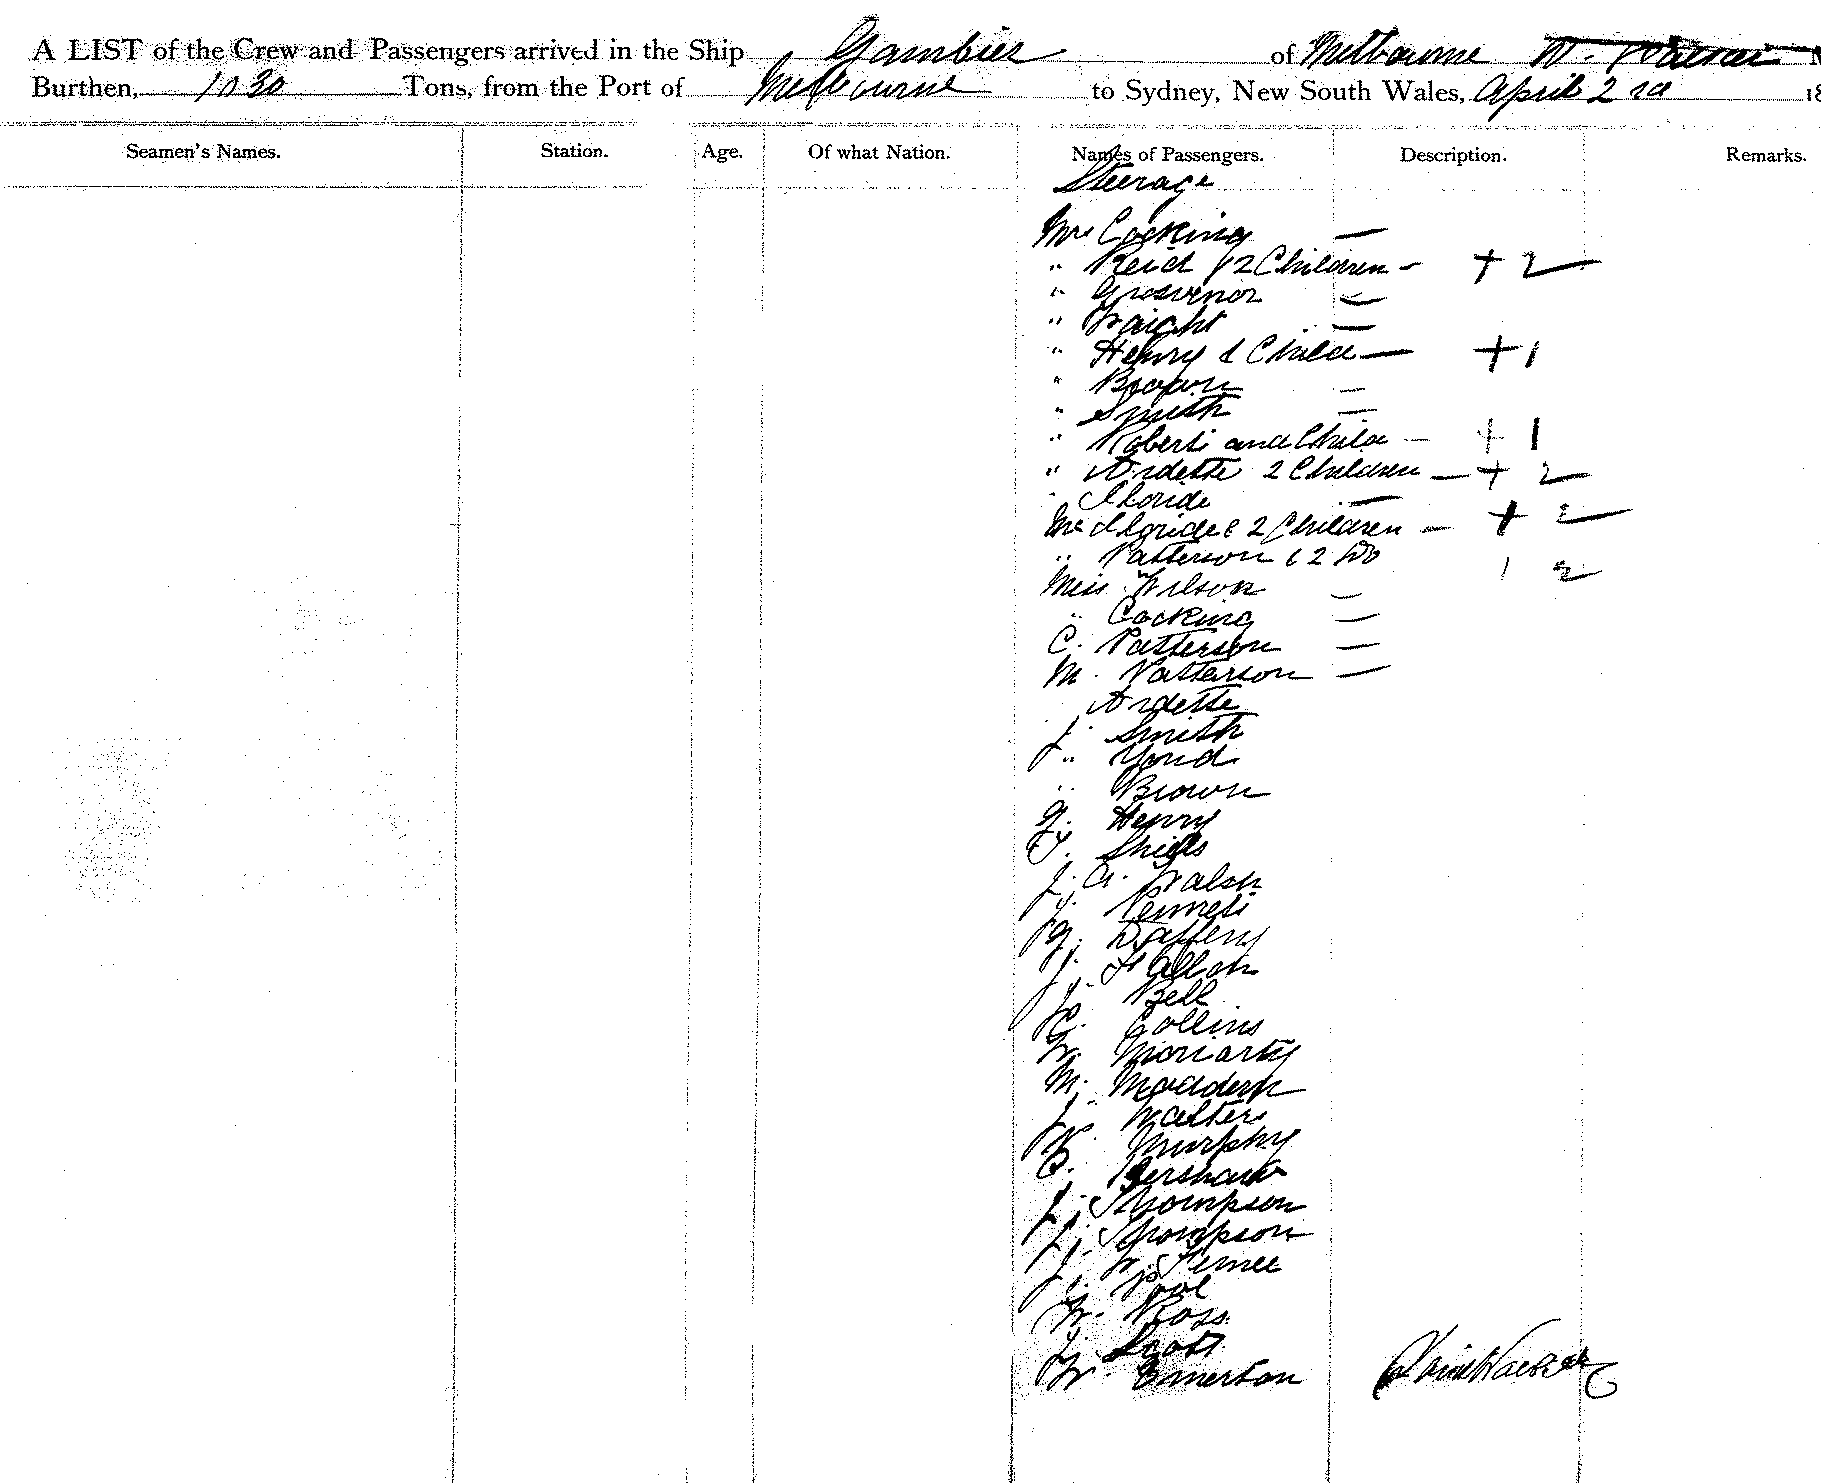 A LIST of the Crew and Passengers arrived in the Ship Gambier of Melbourne W.
Burthen, 1030 Tons, from the Port of Melbourne to Sydney, New South Wales, April 2 18
Seamen's Names. Station. Age. Of what Nation. Names of Passengers. Description. Remarks.
Steerage
Mrs Cocking —
" Reid & 2 Children - + 2
" Grosvenor —
" —
" Henry & Child — + 1
" Brown —
" Smith —
" Robert and Child — + 1
" Ardette 2 Children — + 2
" —
& 2 Children — + 2
" Patterson & 2 Do 1 2
Miss Wilson —
" Cocking —
C. Patterson —
M. Patterson —
Ardette
J. Smith
" Yond
" Brown
G. Henry
T. Shiels
J. A. Walsh
J.
G. Daffery
J. Fallon
J. Bell
C. Collins
W. Moriarty
M. Maddern
J. Walters
W. Murphy
C. Kershaw
J. Thompson
J. Thompson
J. W.
J. Pool
W. Ross
J. Scott
W. Emerton